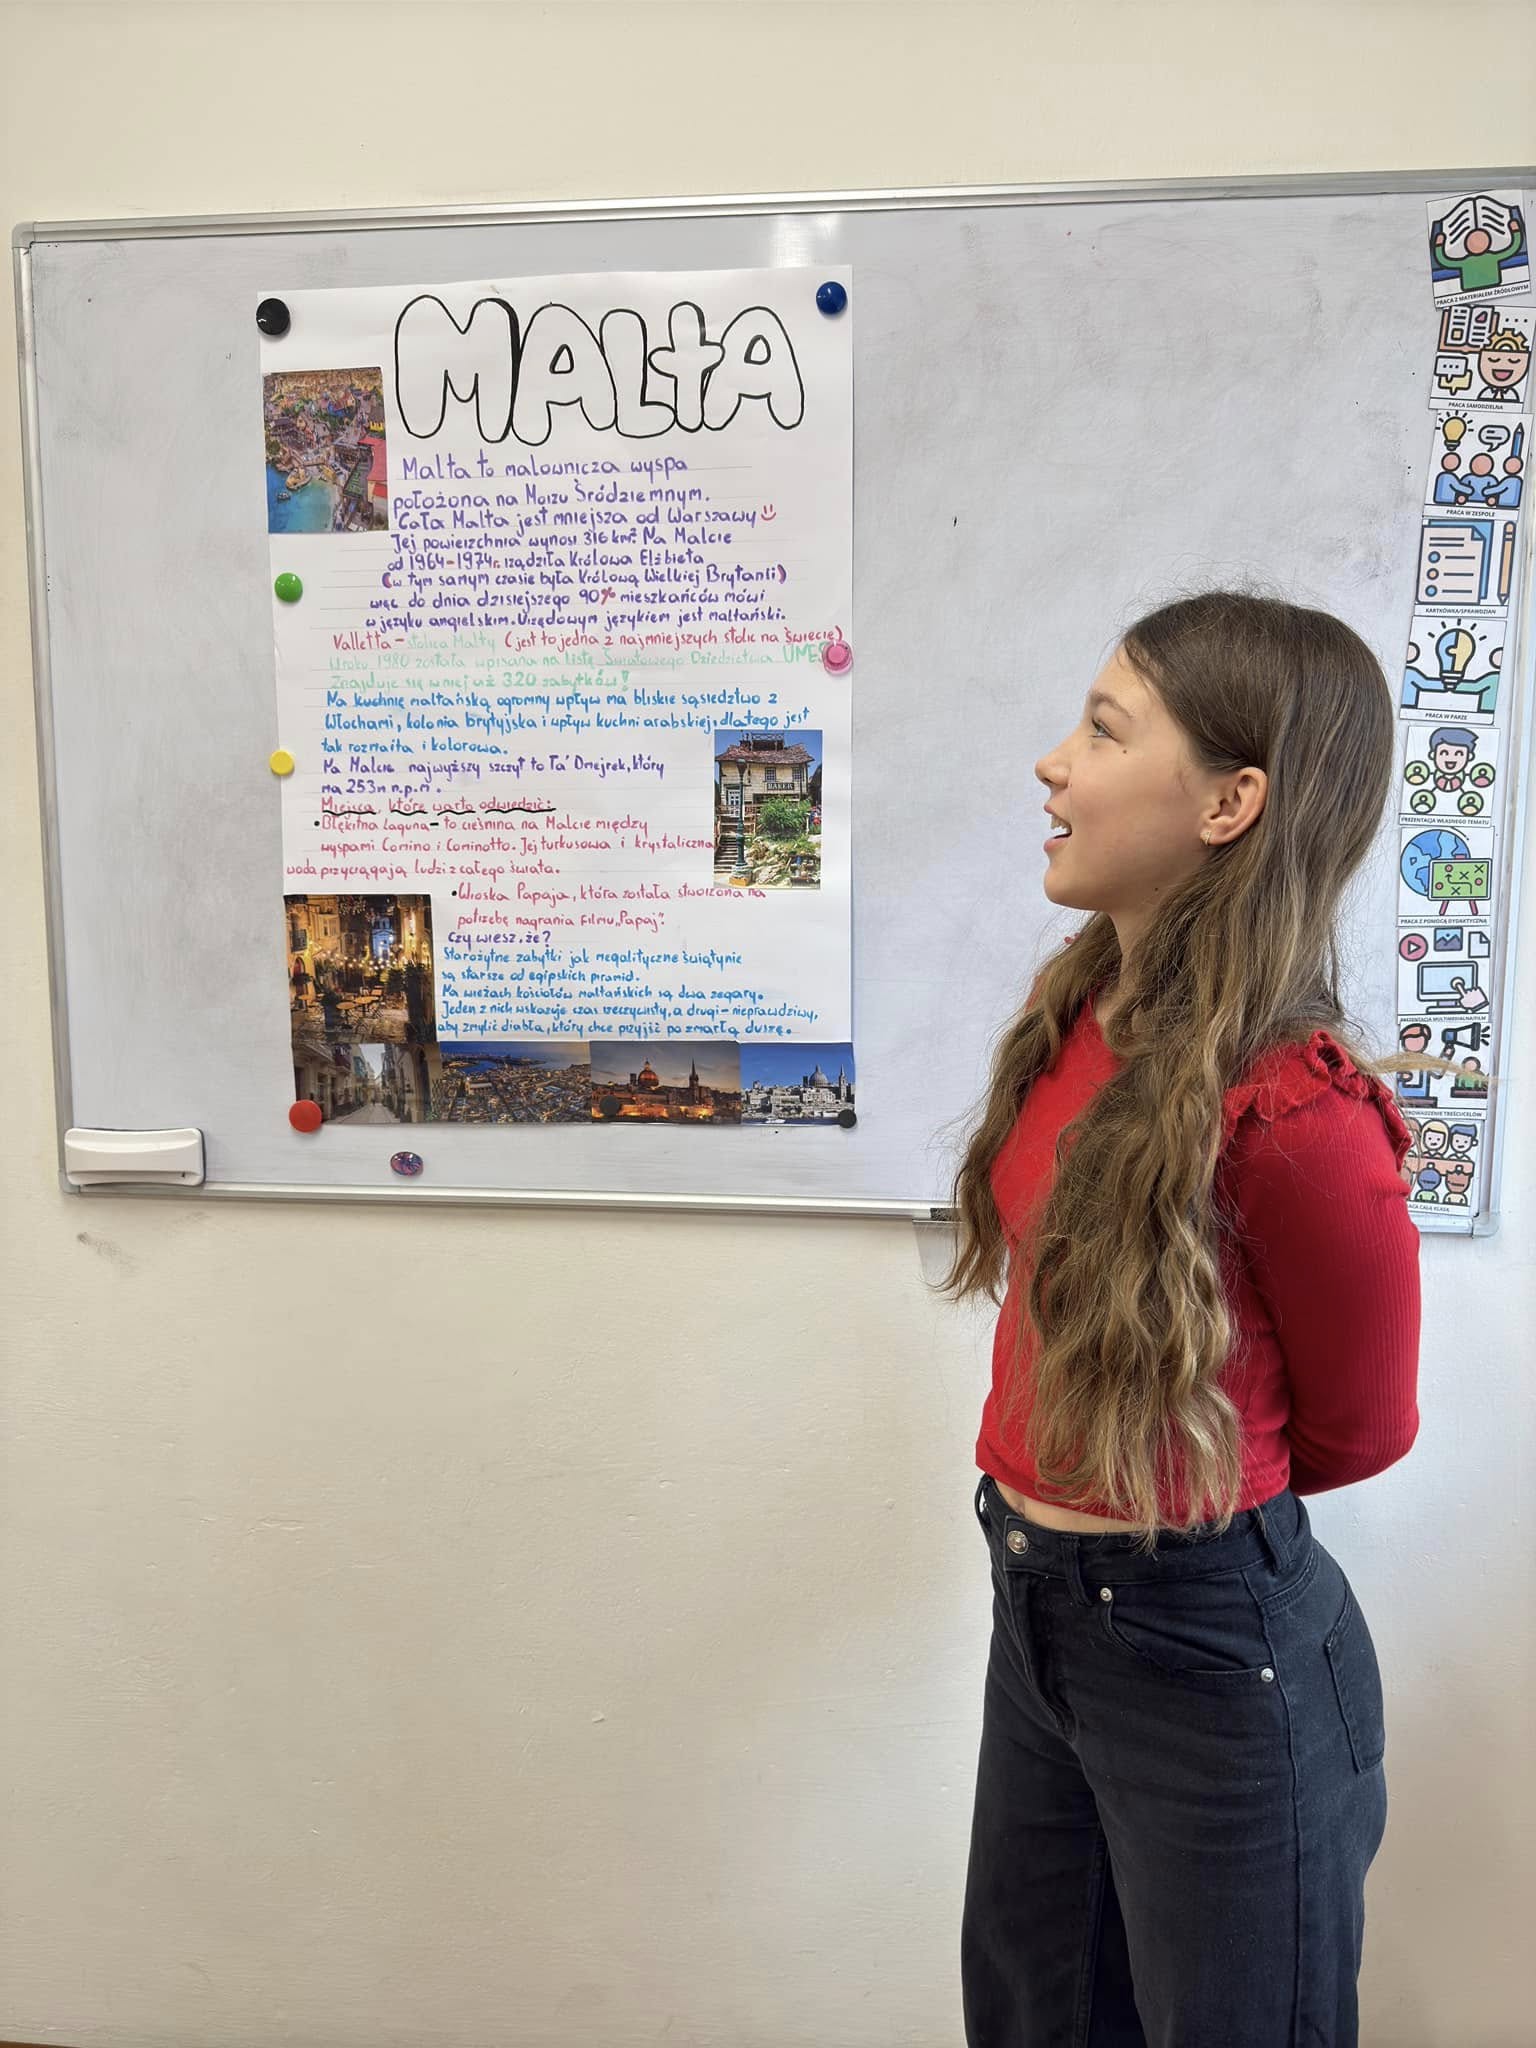 MALtA
Malta to malownicza wyspa
położona na Morzu Śródziemnym.
Cała Malta jest mniejsza od Warszawy
Jej powierzchnia wynosi 316 km². Na Malcie
od 1964-1974r. rządziła Królowa Elżbieta
(w tym samym czasie była Królową Wielkiej Brytanii)
więc do dnia dzisiejszego 90% mieszkańców mówi
w języku angielskim. Urzędowym językiem jest maltański.
Valletta - stolica Malty (jest to jedna z najmniejszych stolic na świecie)
W roku 1980 została wpisana na listę Światowego Dziedzictwa UNES
Znajduje się w niej aż 320 zabytków!
Na kuchnię maltańską ogromny wpływ ma bliskie sąsiedztwo z
Włochami, kolonia brytyjska i wpływ kuchni arabskiej, dlatego jest
tak rozmaita i kolorowa.
Na Malcie najwyższy szczyt to Ta' Dmejrek, który
ma 253m n.p.m.
Miejsca, które warto odwiedzić:
• Błękitna Laguna - to cieśnina na Malcie między
wyspami Comino i Cominotto. Jej turkusowa i krystaliczna
woda przyciągają ludzi z całego świata.
• Wioska Papaja, która została stworzona na
potrzebę nagrania filmu "Papaj".
Czy wiesz, że?
Starożytne zabytki jak megalityczne świątynie
są starsze od egipskich piramid.
Na wieżach kościołów maltańskich są dwa zegary.
Jeden z nich wskazuje czas rzeczywisty, a drugi - nieprawdziwy,
aby zmylić diabła, który chce przyjść po zmarłą duszę.
BAKER
PRACA Z MATERIAŁEM ŹRÓDŁOWYM
PRACA SAMODZIELNA
PRACA W ZESPOLE
KARTKÓWKA/SPRAWDZIAN
PRACA W PARZE
PREZENTACJA WŁASNEGO TEMATU
PRACA Z POMOCĄ DYDAKTYCZNĄ
PREZENTACJA MULTIMEDIALNA/FILM
ROWADZENIE TREŚCI/CELÓW
ACA CAŁĄ KLASĄ